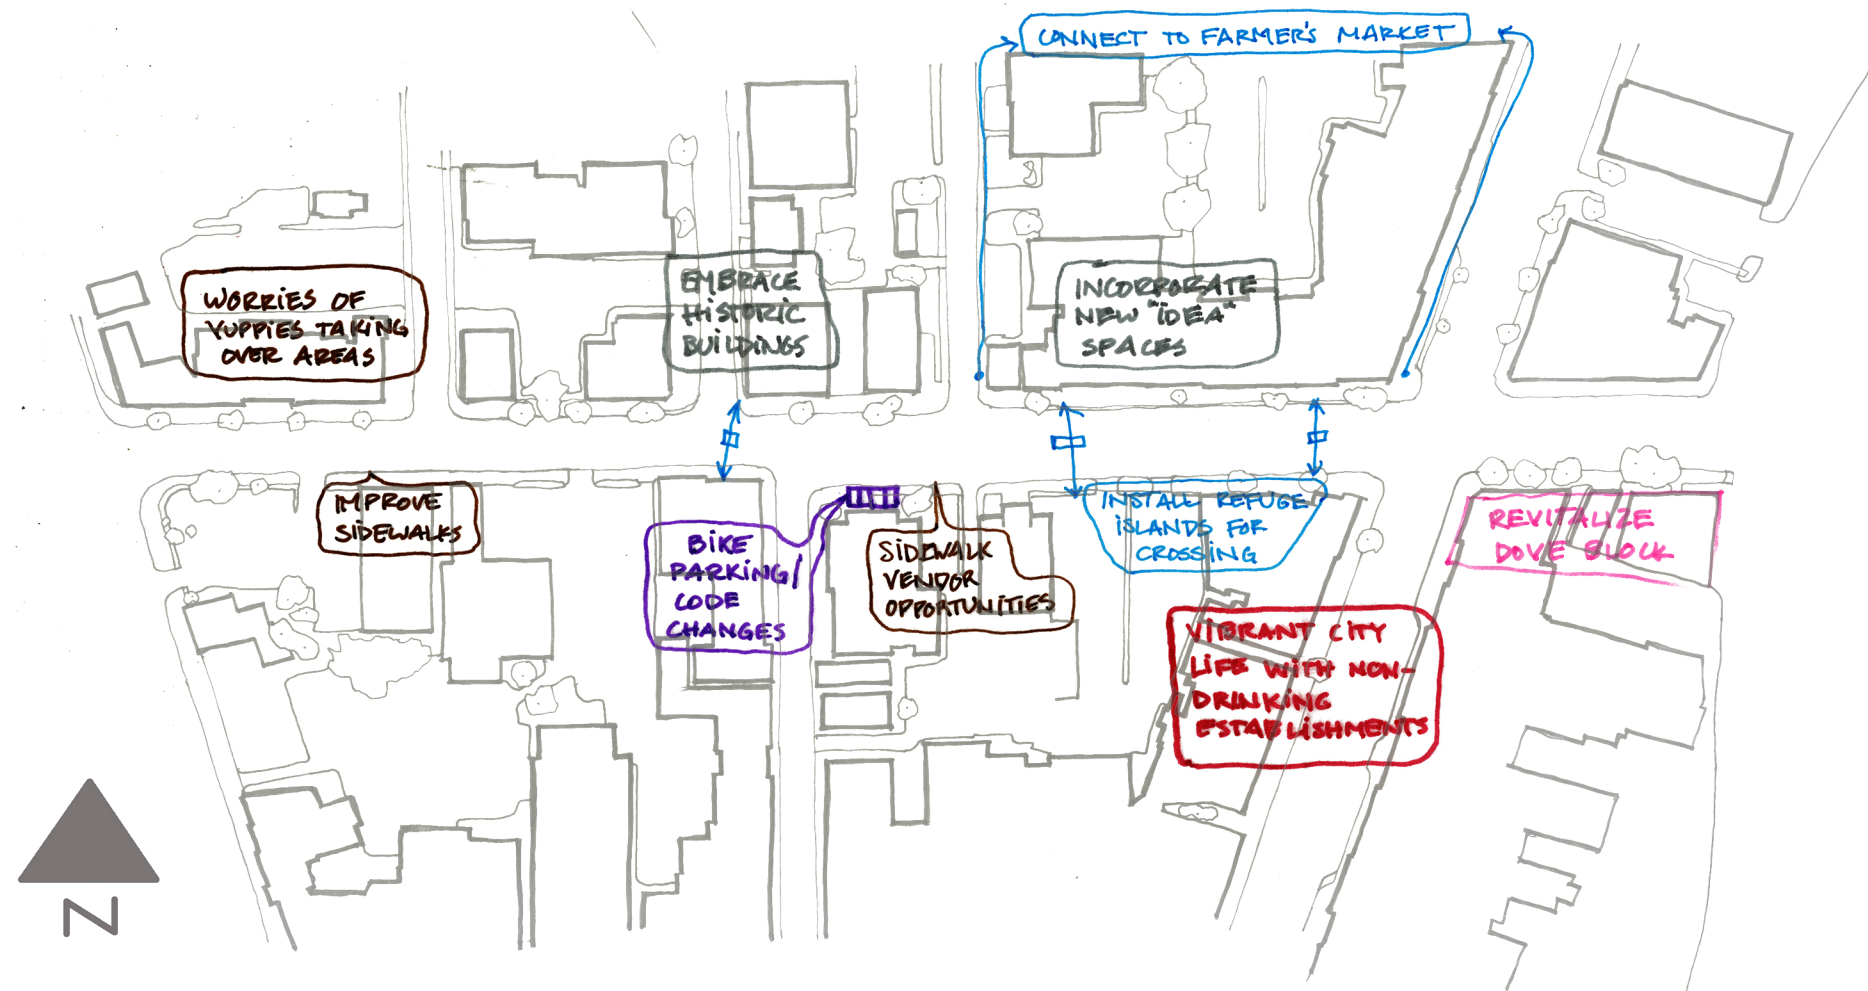 CONNECT TO FARMER'S MARKET
WORRIES OF
YUPPIES TAKING
OVER AREAS
EMBRACE
HISTORIC
BUILDINGS
INCORPORATE
NEW "IDEA"
SPACES
IMPROVE
SIDEWALKS
BIKE
PARKING/
CODE
CHANGES
SIDEWALK
VENDOR
OPPORTUNITIES
INSTALL REFUGE
ISLANDS FOR
CROSSING
REVITALIZE
DOVE BLOCK
VIBRANT CITY
LIFE WITH NON-
DRINKING
ESTABLISHMENTS
N